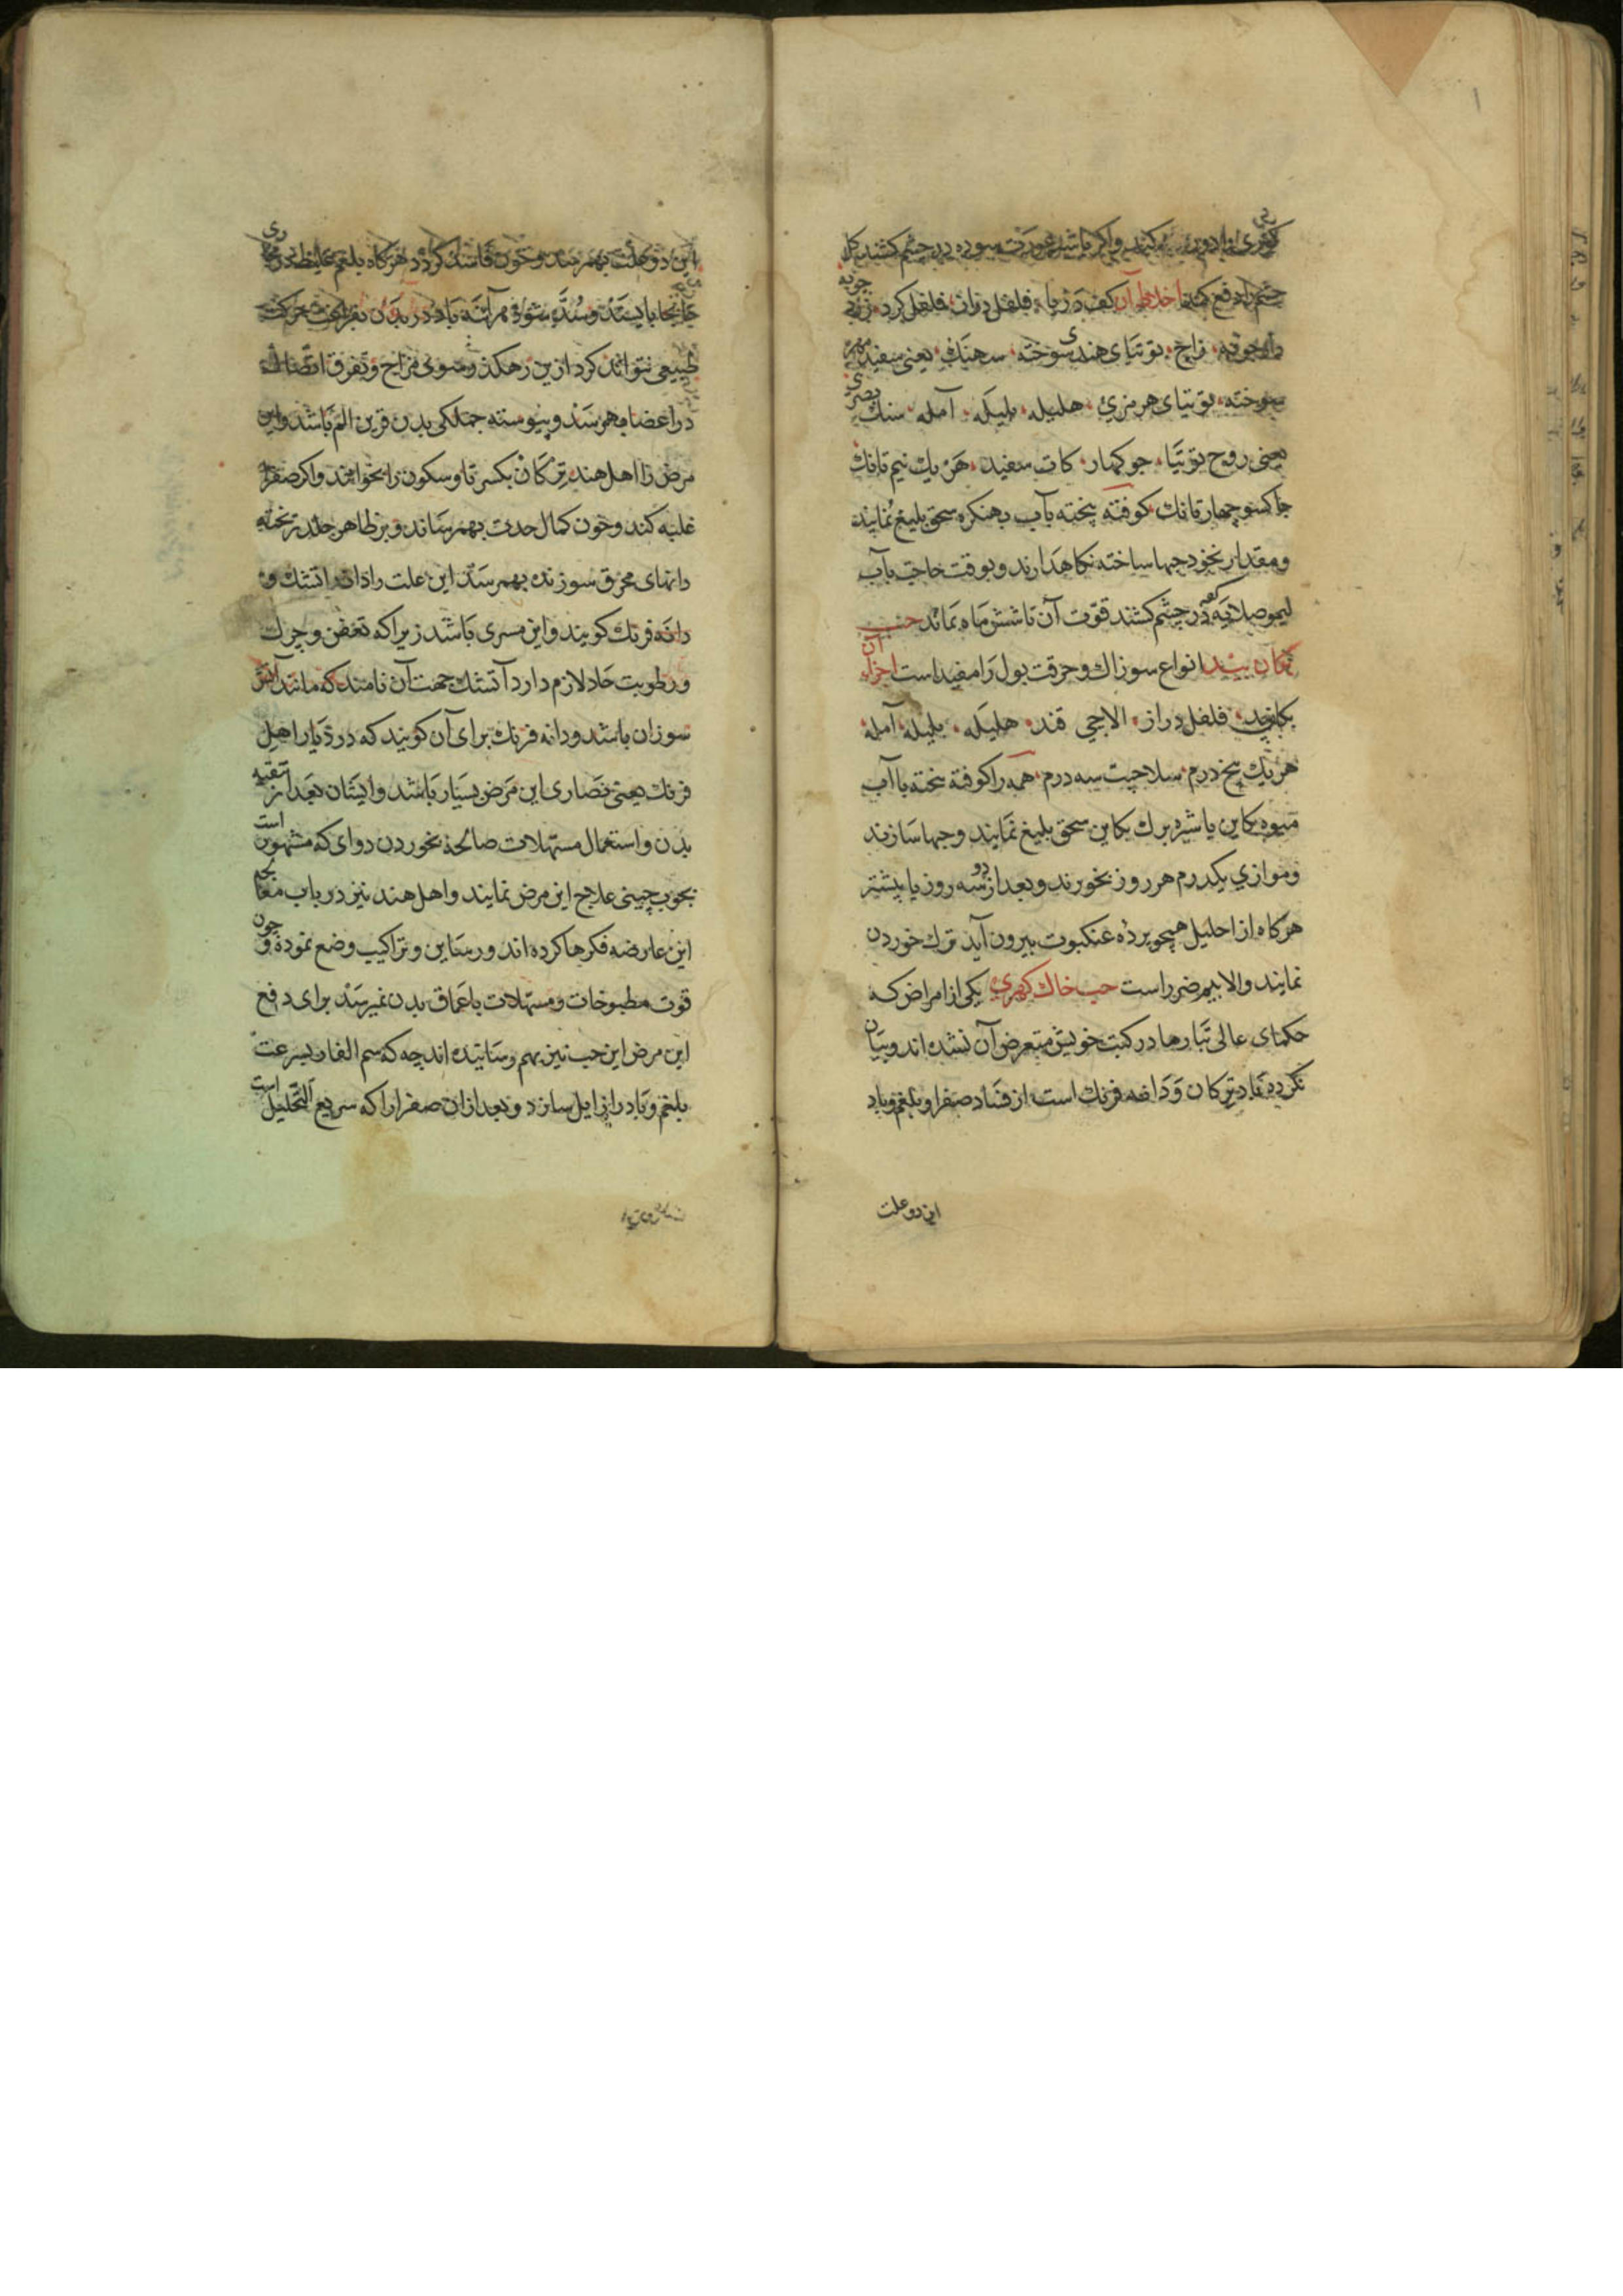 کهری از ادویه کنند و اکر باشیر عورت سوده در چشم کشند کل
چشم را دفع کند اخلاط آن کف دریا فلفل دراز فلفل کرد
زاج توتیای هندی سوخته سهنک یعنی سفید مهره
سوخته توتیای هرمزی هلیله بلیله آمله سنک بصری
یعنی روح توتیا جوکهار کات سفید هر یک نیم تانک
جاکسو چهار تانک کوفته پخته بآب بهنکره سحق بلیغ نمایند
و مقدار نخود حبها ساخته نکاهدارند و بوقت حاجت بآب
لیمو صلایه کرده در چشم کشند قوت آن تا شش ماه بماند حب
بند انواع سوزاک و حرقت بول را مفید است اجزاء آن
فلفل دراز الاچی قند هلیله بلیله آمله
هر یک پنج درم سلاجیت سه درم همه را کوفته پخته با آب
میوه بکاین یا شیره برک بکاین سحق بلیغ نمایند و حبها سازند
و موازی یکدرم هر روز بخورند و بعد از دو سه روز یا بیشتر
هرکاه از احلیل همچو پرده عنکبوت بیرون آید ترک خوردن
نمایند والا بیم ضرر است حب خاک کهری یکی از امراض که
حکمای عالی تبارها در کتب خویش متعرض آن نشده اند و بیان
نکرده باد ترکان و دانه فرنک است از فساد صفرا و بلغم و باد
این دو علت
این دو علت بهم رسد و خون فاسد کردد هرکاه بلغم غلیظ در مجاری
جابجا بایستد و سده شود هر آینه باد در بدن بفراغت حرکت
طبیعی نتواند کرد ازین رهکذر سوی مزاج و تفرق اتصال
در اعضا بهم رسد و پیوسته جملکی بدن قرین الم باشد و این
مرض را اهل هند ترکان بکسر تا و سکون را خوانند و اکر صفرا
غلبه کند و خون کمال حدت بهم رساند و بر ظاهر جلد ریخته
دانهای محرق سوزنده بهم رسد این علت را دانه اتشک و
دانه فرنک کویند و این مسری باشد زیرا که تعفن و چرک
و رطوبت حاد لازم دارد آتشک جهت آن نامند که مانند آتش
سوزان باشد و دانه فرنک برای آن کویند که در دیار اهل
فرنک یعنی نصاری این مرض بسیار باشد و ایشان بعد از تنقیه
بدن و استعمال مسهلات صالحه بخوردن دوای که مشهور است
بچوب چینی علاج این مرض نمایند و اهل هند نیز در باب معالجه
این عارضه فکرها کرده اند و رساین و تراکیب وضع نموده و چون
قوت مطبوخات و مسهلات باعماق بدن نمیرسد برای دفع
این مرض این حب نیز بهم رسانیده اند چه که سم الفار بسرعت
بلغم و باد را زایل سازد و بعد ازان صفرا را که سریع التحلیل است